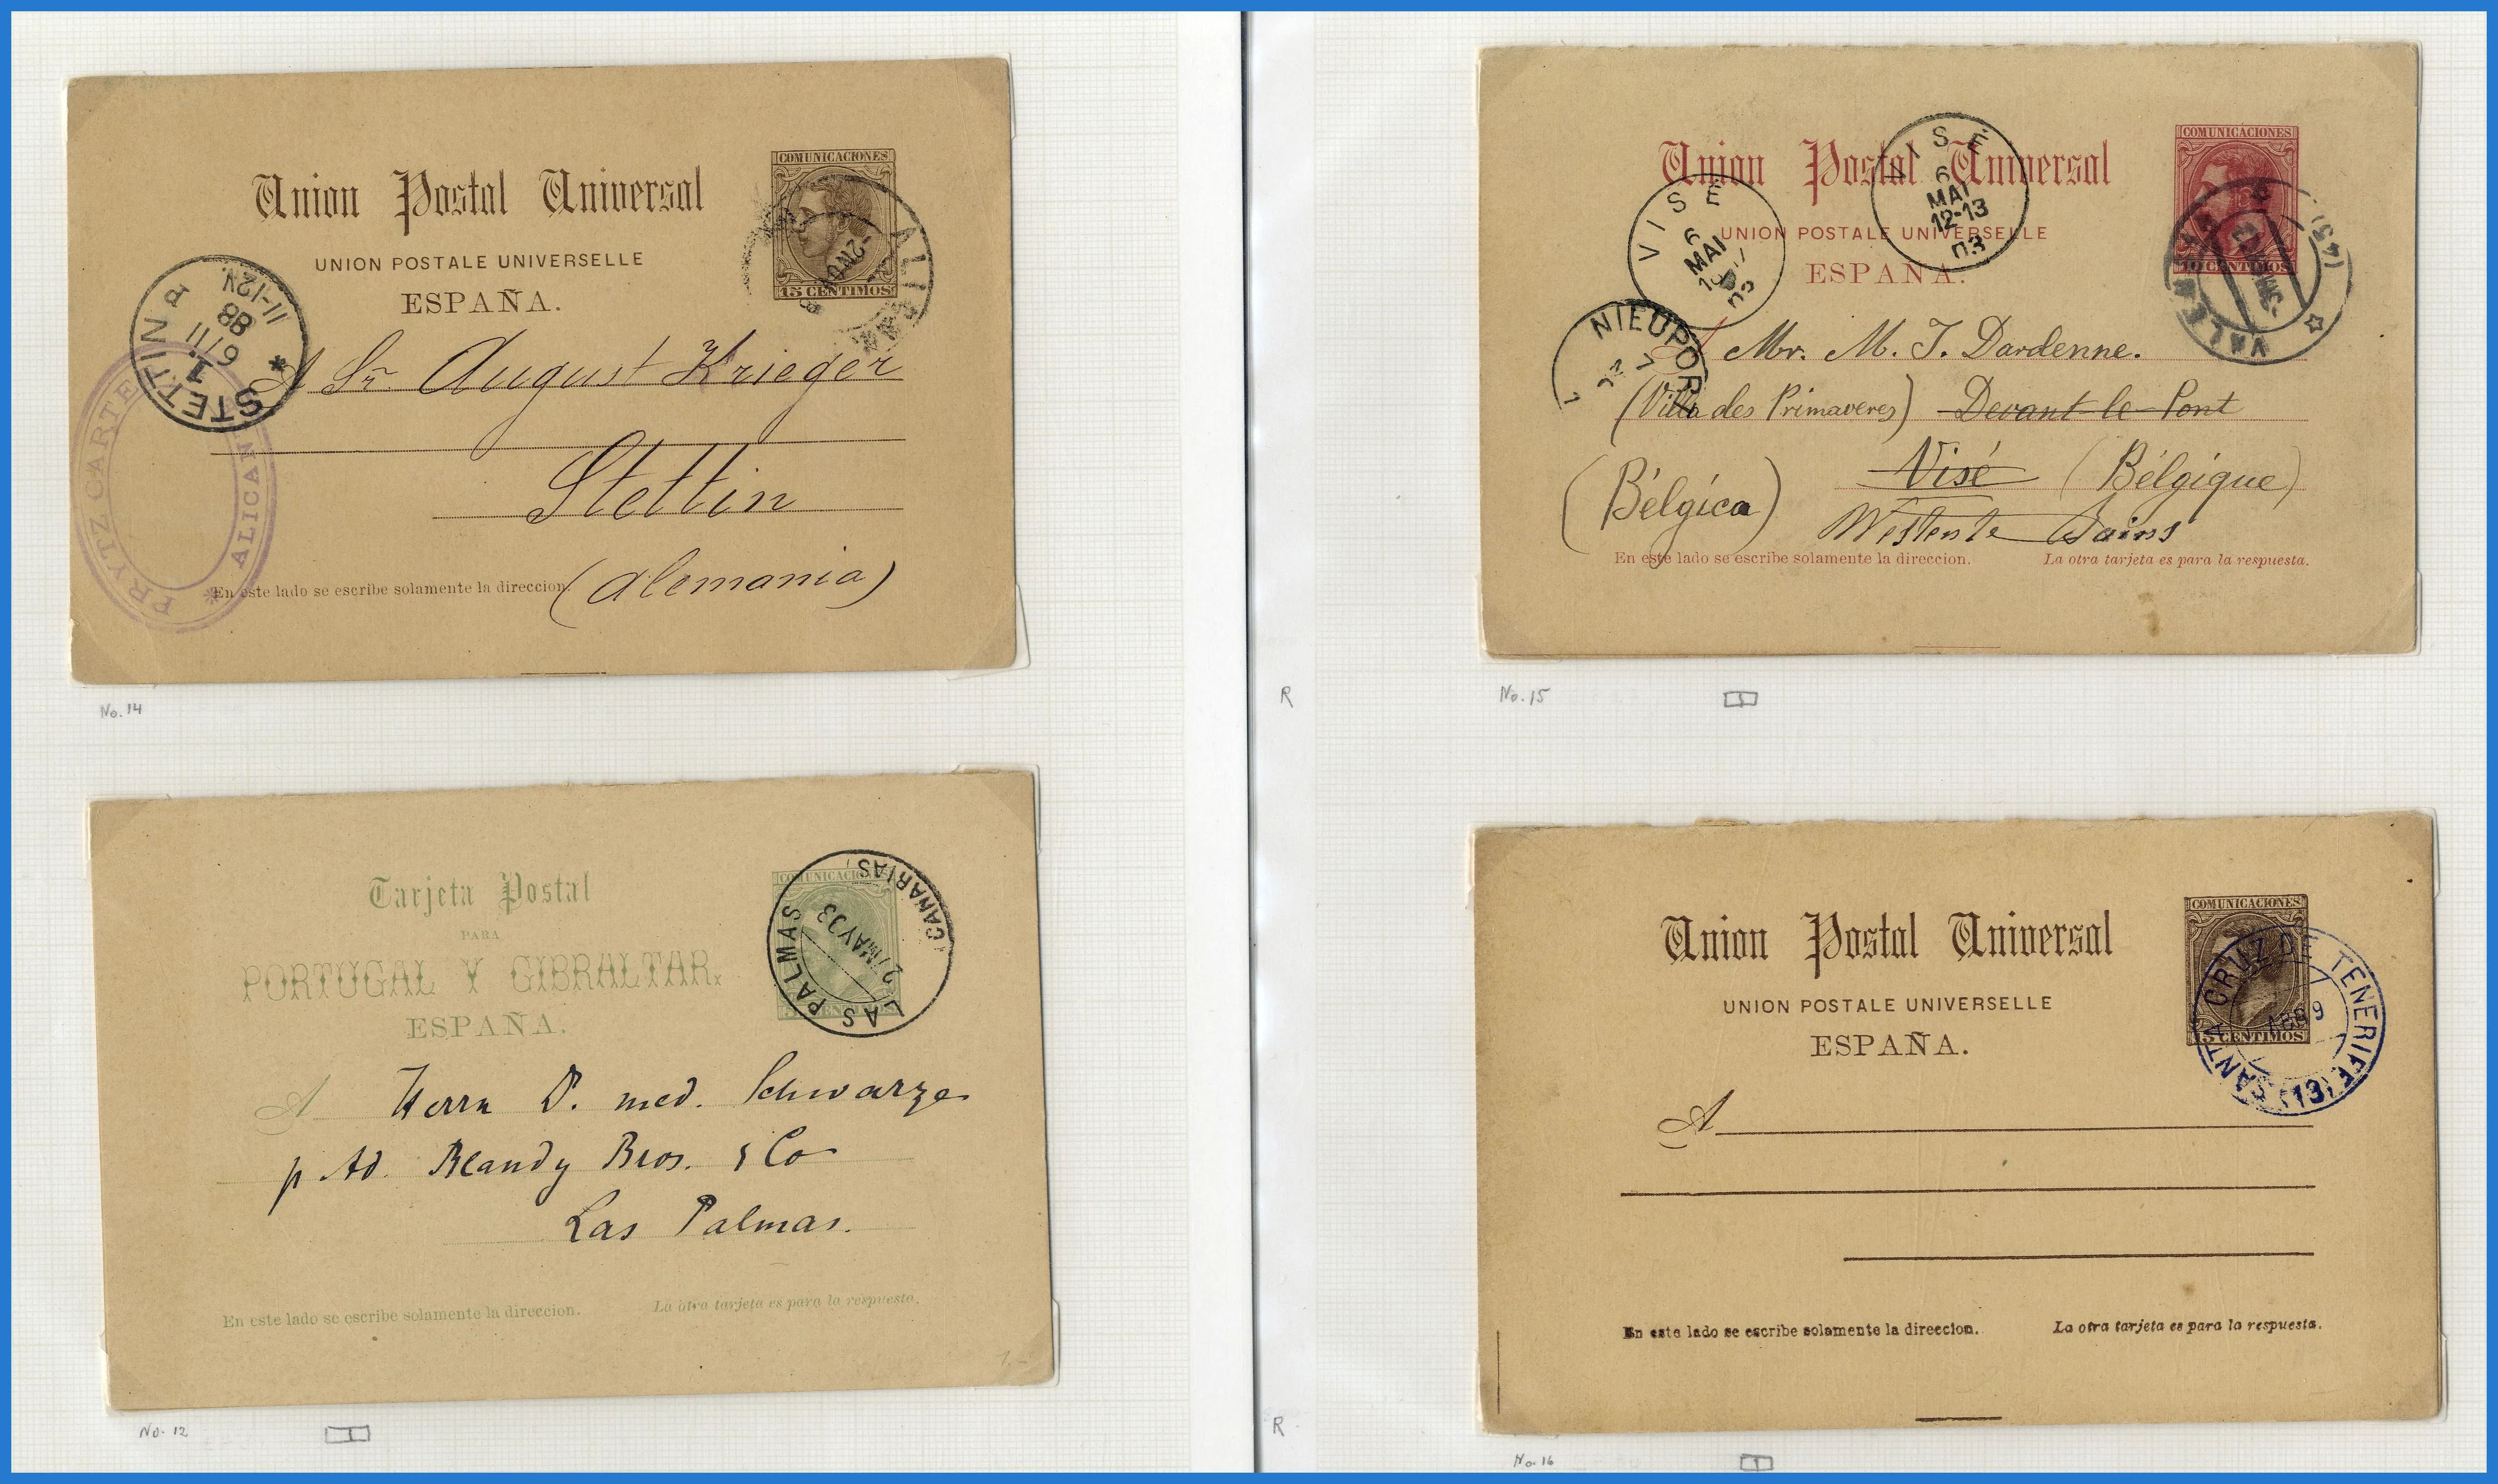 COMUNICACIONES
15 CENTIMOS
Union Postal Universal
UNION POSTALE UNIVERSELLE
ESPAÑA.
STETTIN
1.
6/11
88
11-12V.
A Sr. August Krieger
Stettin
(Alemania)
En este lado se escribe solamente la direccion.
PRYTZ CARTE
ALICAN
No. 14
COMUNICACIONES
10 CENTIMOS
Union Postal Universal
UNION POSTALE UNIVERSELLE
ESPAÑA.
VISÉ
6
MAI
12-13
03
VISÉ
6
MAI
NIEUPOR
A Mr. M. J. Dardenne.
(Villa des Primaveres) Devant-le-Pont
Visé (Bélgique)
(Bélgica)
Westente Bains
En este lado se escribe solamente la direccion. La otra tarjeta es para la respuesta.
R
No. 15
COMUNICACIONES
Tarjeta Postal
PARA
PORTUGAL Y GIBRALTAR.
ESPAÑA.
LAS PALMAS
(CANARIAS)
27MAY03
A Herrn D. med. Schwarze
p. Ad. Blandy Bros. & Co
Las Palmas.
En este lado se escribe solamente la direccion. La otra tarjeta es para la respuesta.
No. 12
1
R
COMUNICACIONES
5 CENTIMOS
Union Postal Universal
UNION POSTALE UNIVERSELLE
ESPAÑA.
SANTA CRUZ DE TENERIFE
(13)
A
En este lado se escribe solamente la direccion. La otra tarjeta es para la respuesta.
No. 16
1